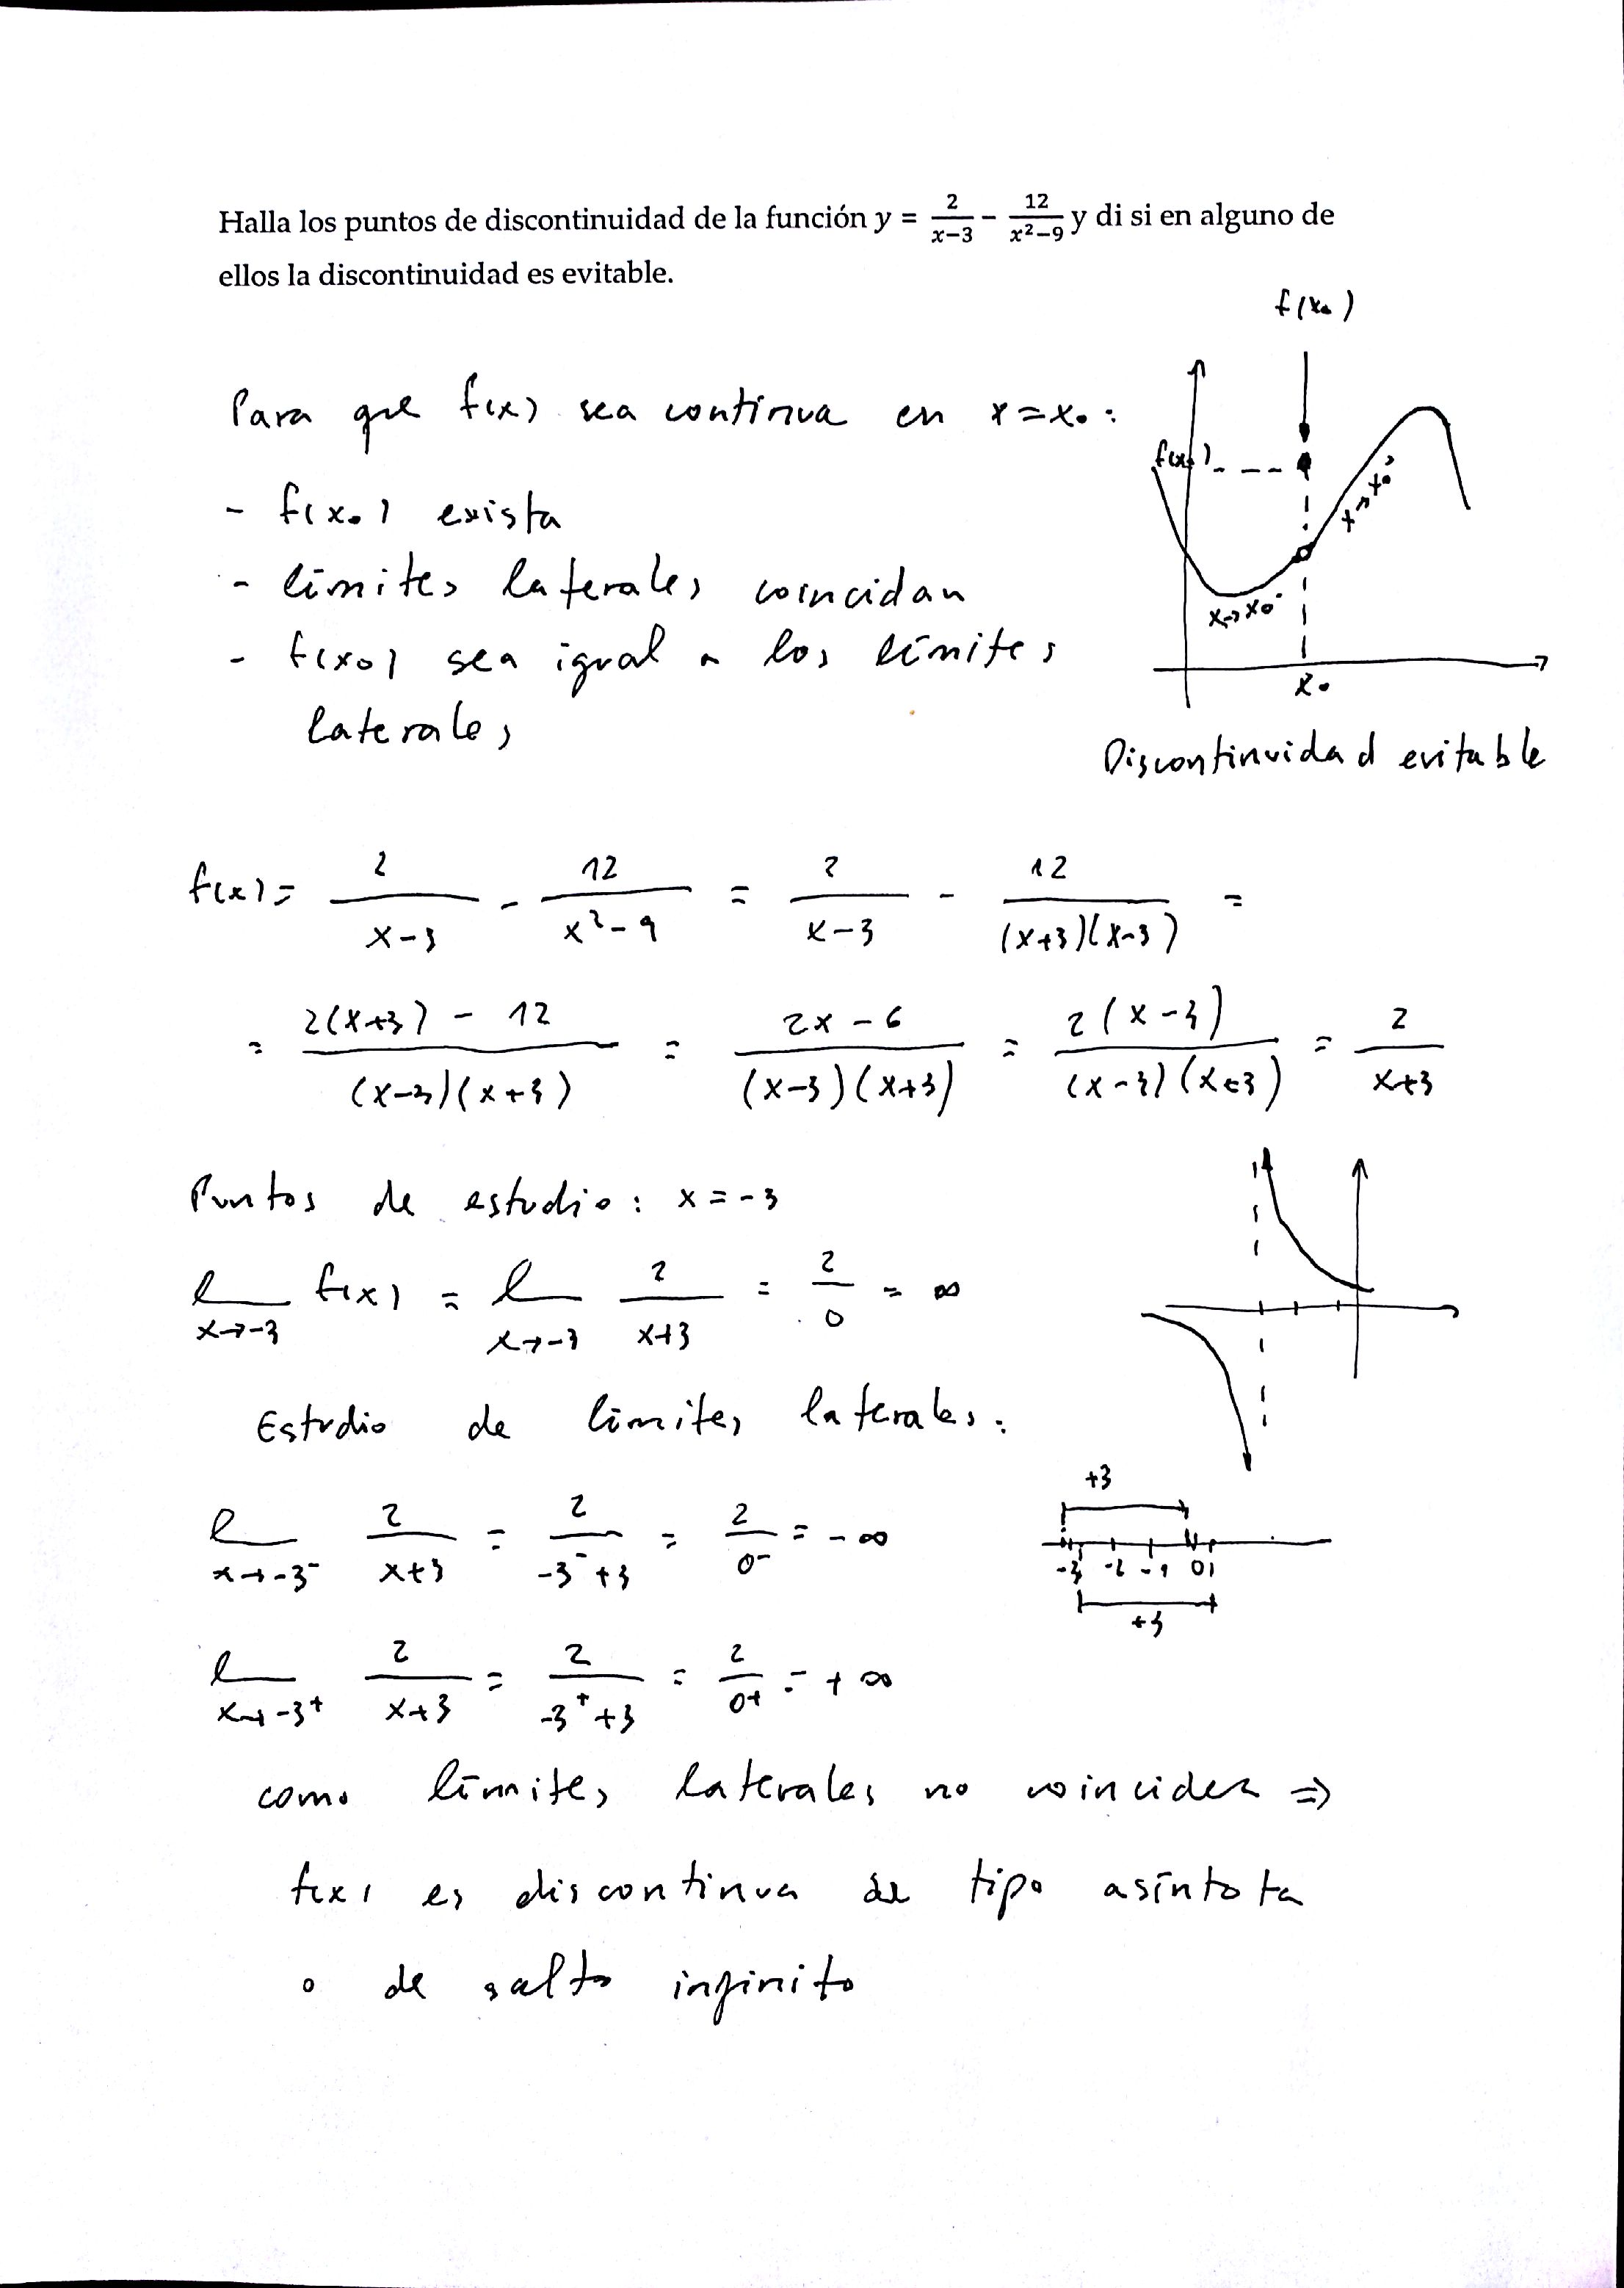 Halla los puntos de discontinuidad de la función y = 2/(x−3) − 12/(x²−9) y di si en alguno de
ellos la discontinuidad es evitable.
f(x₀)
Para que f(x) sea continua en x=x₀:
f(x₀)
- f(x₀) exista
x→x₀⁺
- límites laterales coincidan
x→x₀⁻
- f(x₀) sea igual a los límites
x₀
laterales
Discontinuidad evitable
f(x) = 2/(x-3) - 12/(x²-9) = 2/(x-3) - 12/((x+3)(x-3)) =
= (2(x+3) - 12)/((x-3)(x+3)) = (2x - 6)/((x-3)(x+3)) = (2(x-3))/((x-3)(x+3)) = 2/(x+3)
Puntos de estudio: x = -3
l x→-3 f(x) = l x→-3 2/(x+3) = 2/0 = ∞
Estudio de límites laterales:
+3
l x→-3⁻ 2/(x+3) = 2/(-3⁻+3) = 2/0⁻ = -∞
-3 -2 -1 0
+3
l x→-3⁺ 2/(x+3) = 2/(-3⁺+3) = 2/0⁺ = +∞
como límites laterales no coinciden ⇒
f(x) es discontinua de tipo asíntota
o de salto infinito